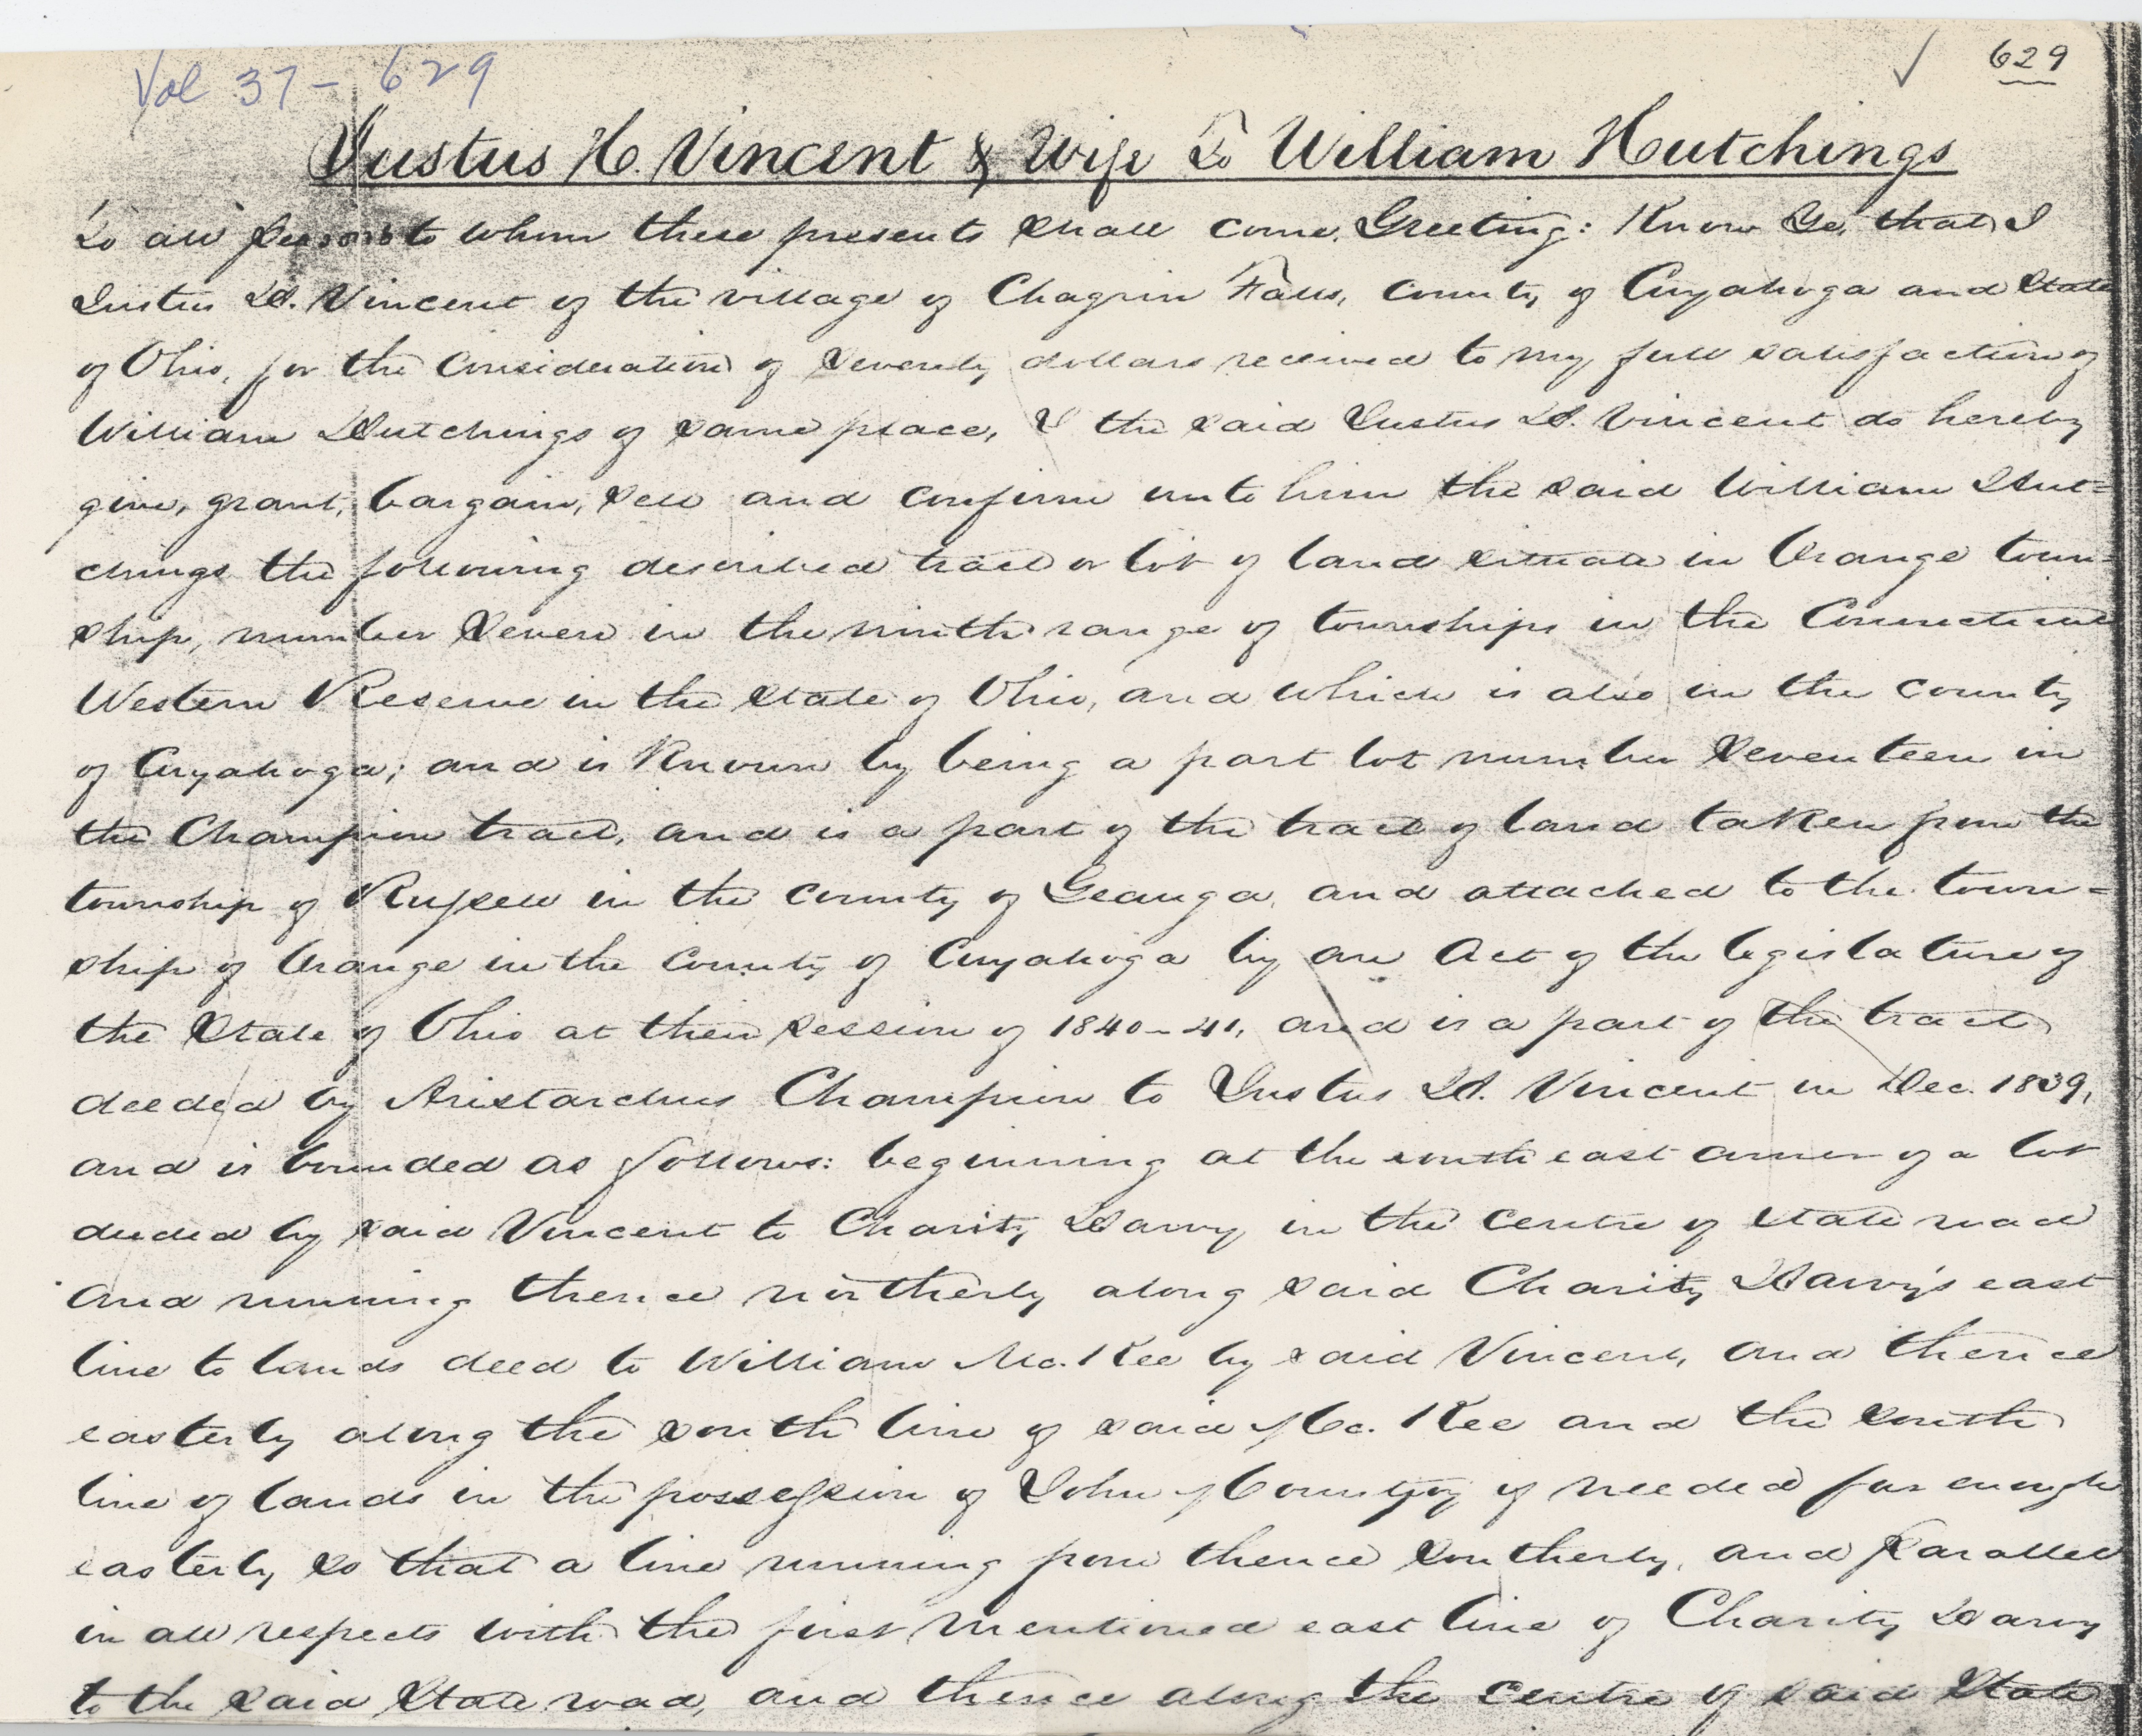 Vol 37 - 629
629
Justus H. Vincent & Wife To William Hutchings
To all persons to whom these presents shall come, Greeting: Know Ye, that I
Justus H. Vincent of the village of Chagrin Falls, County of Cuyahoga and State
of Ohio, for the consideration of Seventy dollars received to my full satisfaction of
William Hutchings of same place, I the said Justus H. Vincent do hereby
give, grant, bargain, sell and confirm unto him the said William Hut=
chings the following described tract or lot of land situate in Orange town=
ship, number Seven in the ninth range of townships in the Connecticut
Western Reserve in the State of Ohio, and which is also in the county
of Cuyahoga; and is Known by being a part lot number Seventeen in
the Champion tract, and is a part of the tract of land taken from the
township of Russell in the county of Geauga, and attached to the town=
ship of Orange in the County of Cuyahoga by an Act of the legislature of
the State of Ohio at their session of 1840-41, and is a part of the tract
deeded by Aristarchus Champion to Justus H. Vincent in Dec. 1839,
and is bounded as follows: beginning at the south east corner of a lot
deeded by said Vincent to Charity Harvy in the centre of state road
and running thence northerly along said Charity Harvy's east
line to lands deed to William Mc. Kee by said Vincent, and thence
easterly along the south line of said Mc. Kee and the south
line of lands in the possession of John if needed far enough
easterly so that a line running from thence southerly, and parallel
in all respects with the first mentioned east line of Charity Harvy
to the said State road, and thence along the centre of said State